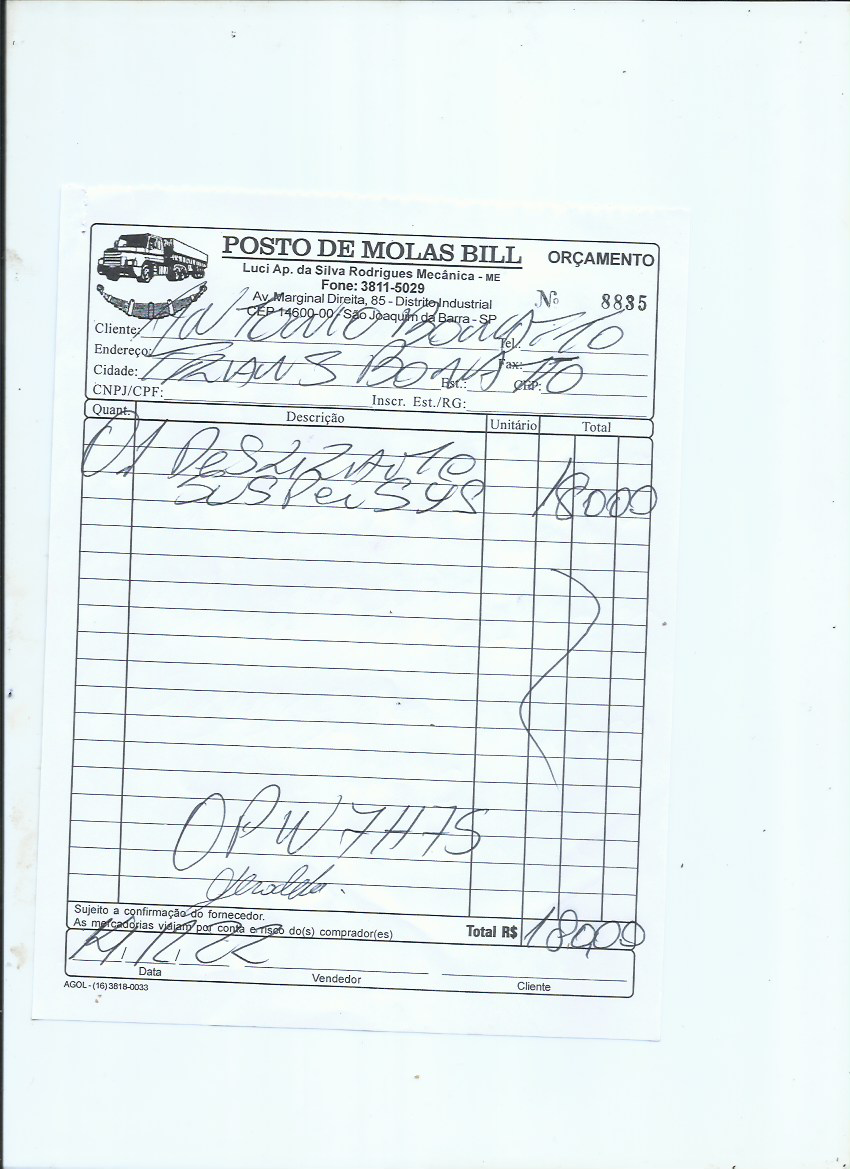 POSTO DE MOLAS BILL
ORÇAMENTO
Luci Ap. da Silva Rodrigues Mecânica - ME
Fone: 3811-5029
Av. Marginal Direita, 85 - Distrito Industrial
CEP 14600-00 - São Joaquim da Barra - SP
Nº 8835
Cliente: Antonio Bonatto Tel.:
Endereço: Fax:
Cidade: TRANS BONATTO Est.: CEP:
CNPJ/CPF: Inscr. Est./RG:
Quant. Descrição Unitário Total
01 DeSLIZANTO
SUSPenSYS 18000
OPW 7H75
Geraldo.
Sujeito a confirmação do fornecedor.
As mercadorias viajam por conta e risco do(s) comprador(es)
Total R$ 18000
Data Vendedor Cliente
AGOL - (16) 3818-0033